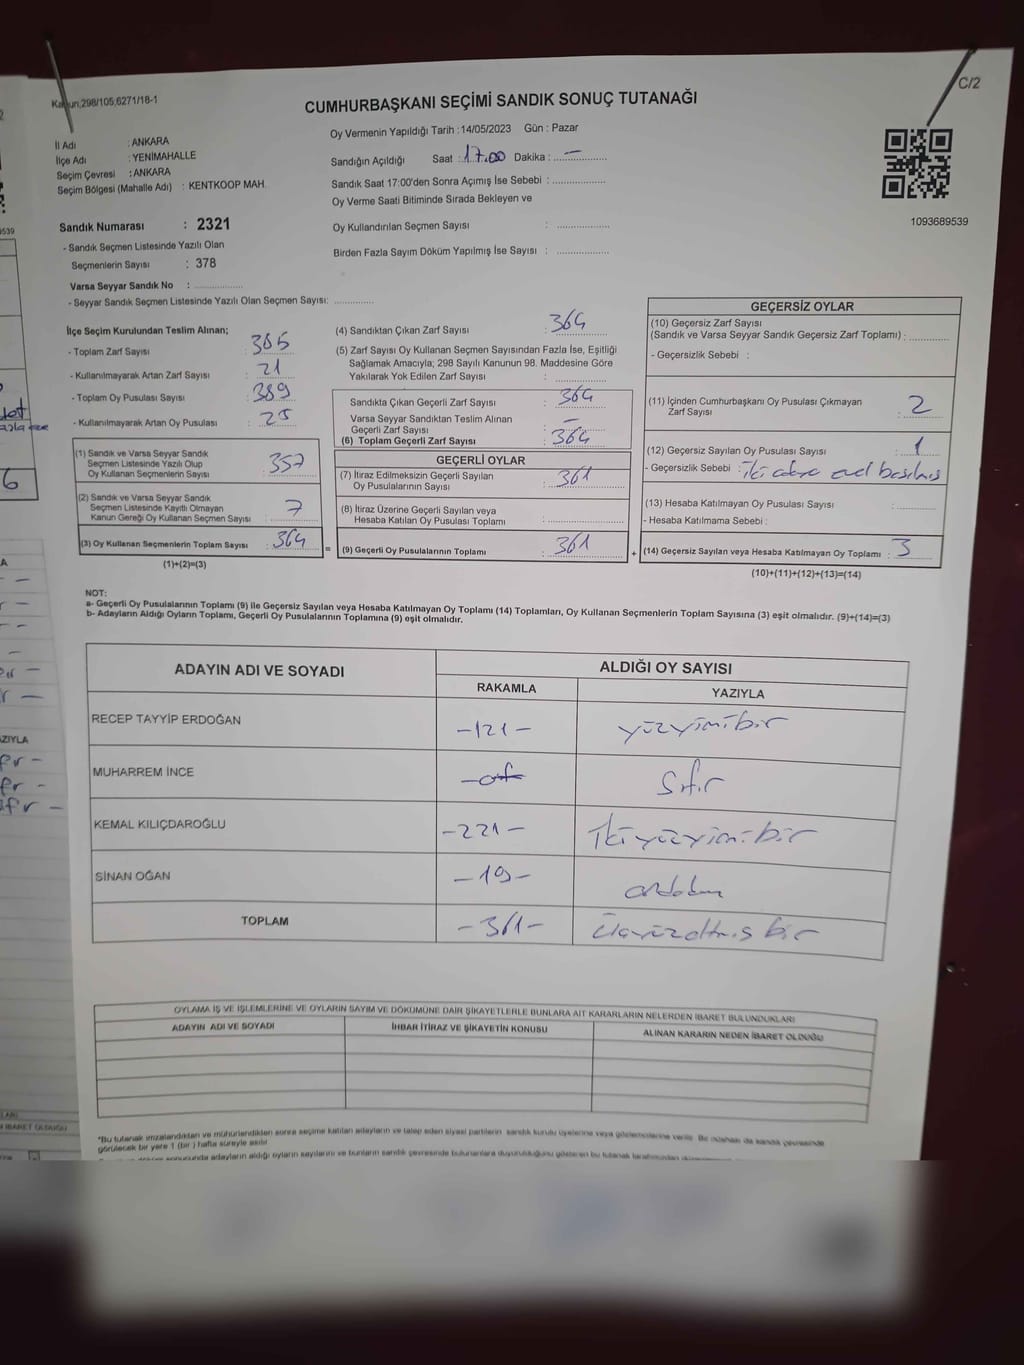 C/2
Kanun,298/105,6271/18-1
CUMHURBAŞKANI SEÇİMİ SANDIK SONUÇ TUTANAĞI
İl Adı : ANKARA
İlçe Adı : YENİMAHALLE
Seçim Çevresi : ANKARA
Seçim Bölgesi (Mahalle Adı) : KENTKOOP MAH.
Oy Vermenin Yapıldığı Tarih : 14/05/2023 Gün : Pazar
Sandığın Açıldığı Saat : 17.00 Dakika : —
Sandık Saat 17:00'den Sonra Açımış İse Sebebi :
Oy Verme Saati Bitiminde Sırada Bekleyen ve
Oy Kullandırılan Seçmen Sayısı :
Birden Fazla Sayım Döküm Yapılmış İse Sayısı :
1093689539
Sandık Numarası : 2321
- Sandık Seçmen Listesinde Yazılı Olan
Seçmenlerin Sayısı : 378
Varsa Seyyar Sandık No :
- Seyyar Sandık Seçmen Listesinde Yazılı Olan Seçmen Sayısı:
İlçe Seçim Kurulundan Teslim Alınan;
- Toplam Zarf Sayısı : 385
- Kullanılmayarak Artan Zarf Sayısı : 21
- Toplam Oy Pusulası Sayısı : 389
- Kullanılmayarak Artan Oy Pusulası : 25
(1) Sandık ve Varsa Seyyar Sandık
Seçmen Listesinde Yazılı Olup
Oy Kullanan Seçmenlerin Sayısı : 357
(2) Sandık ve Varsa Seyyar Sandık
Seçmen Listesinde Kayıtlı Olmayan
Kanun Gereği Oy Kullanan Seçmen Sayısı : 7
(3) Oy Kullanan Seçmenlerin Toplam Sayısı : 364
(1)+(2)=(3)
(4) Sandıktan Çıkan Zarf Sayısı : 364
(5) Zarf Sayısı Oy Kullanan Seçmen Sayısından Fazla İse, Eşitliği
Sağlamak Amacıyla; 298 Sayılı Kanunun 98. Maddesine Göre
Yakılarak Yok Edilen Zarf Sayısı :
Sandıkta Çıkan Geçerli Zarf Sayısı : 364
Varsa Seyyar Sandıktan Teslim Alınan
Geçerli Zarf Sayısı : —
(6) Toplam Geçerli Zarf Sayısı : 364
GEÇERLİ OYLAR
(7) İtiraz Edilmeksizin Geçerli Sayılan
Oy Pusulalarının Sayısı : 361
(8) İtiraz Üzerine Geçerli Sayılan veya
Hesaba Katılan Oy Pusulası Toplamı :
= (9) Geçerli Oy Pusulalarının Toplamı : 361
GEÇERSİZ OYLAR
(10) Geçersiz Zarf Sayısı
(Sandık ve Varsa Seyyar Sandık Geçersiz Zarf Toplamı) :
- Geçersizlik Sebebi :
(11) İçinden Cumhurbaşkanı Oy Pusulası Çıkmayan
Zarf Sayısı : 2
(12) Geçersiz Sayılan Oy Pusulası Sayısı : 1
- Geçersizlik Sebebi : İki adaya evet basılmış
(13) Hesaba Katılmayan Oy Pusulası Sayısı :
- Hesaba Katılmama Sebebi :
+ (14) Geçersiz Sayılan veya Hesaba Katılmayan Oy Toplamı : 3
(10)+(11)+(12)+(13)=(14)
NOT:
a- Geçerli Oy Pusulalarının Toplamı (9) ile Geçersiz Sayılan veya Hesaba Katılmayan Oy Toplamı (14) Toplamları, Oy Kullanan Seçmenlerin Toplam Sayısına (3) eşit olmalıdır. (9)+(14)=(3)
b- Adayların Aldığı Oyların Toplamı, Geçerli Oy Pusulalarının Toplamına (9) eşit olmalıdır.
ADAYIN ADI VE SOYADI ALDIĞI OY SAYISI
RAKAMLA YAZIYLA
RECEP TAYYİP ERDOĞAN -121- yüzyirmibir
MUHARREM İNCE Sıfır
KEMAL KILIÇDAROĞLU -221- İkiyüzyirmibir
SİNAN OĞAN -19- ondokuz
TOPLAM -361- üçyüzaltmışbir
OYLAMA İŞ VE İŞLEMLERİNE VE OYLARIN SAYIM VE DÖKÜMÜNE DAİR ŞİKAYETLERLE BUNLARA AİT KARARLARIN NELERDEN İBARET BULUNDUKLARI
ADAYIN ADI VE SOYADI İHBAR İTİRAZ VE ŞİKAYETİN KONUSU ALINAN KARARIN NEDEN İBARET OLDUĞU
*Bu tutanak imzalandıktan ve mühürlendikten sonra seçime katılan adayların ve talep eden siyasi partilerin sandık kurulu üyelerine veya gözlemcilerine verilir. Bir nüshası da sandık çevresinde
görülecek bir yere 1 (bir ) hafta süreyle asılır.